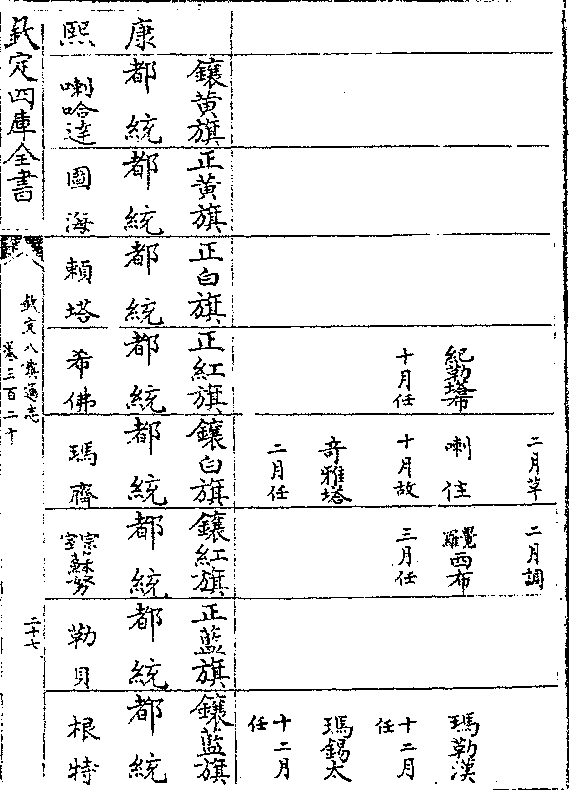 二月革
二月調
喇住
覺羅西布
瑪勒漢
十月任
十月故
三月任
十二月
任
奇雅塔
瑪錫大
二月任
十二月
任
鑲黃旗
正黃旗
正白旗
正紅旗
鑲白旗
鑲紅旗
正藍旗
鑲藍旗
康
都統
都統
都統
都統
都統
都統
都統
都統
熙
喇哈達
圖海
賴塔
希佛
瑪齊
宗室蘇努
勒貝
根特
欽定四庫全書
欽定八旗通志
卷三百二十
二十七